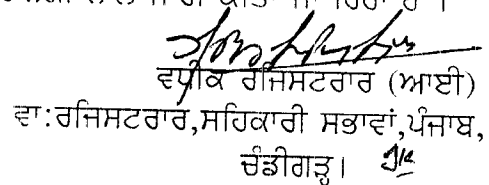 ਕੀਤਾ ਜਾ ਰਿਹਾ ਹੈ ।
ਵਧੀਕ ਰਜਿਸਟਰਾਰ (ਆਈ)
ਵਾ:ਰਜਿਸਟਰਾਰ,ਸਹਿਕਾਰੀ ਸਭਾਵਾਂ,ਪੰਜਾਬ,
ਚੰਡੀਗੜ੍ਹ।